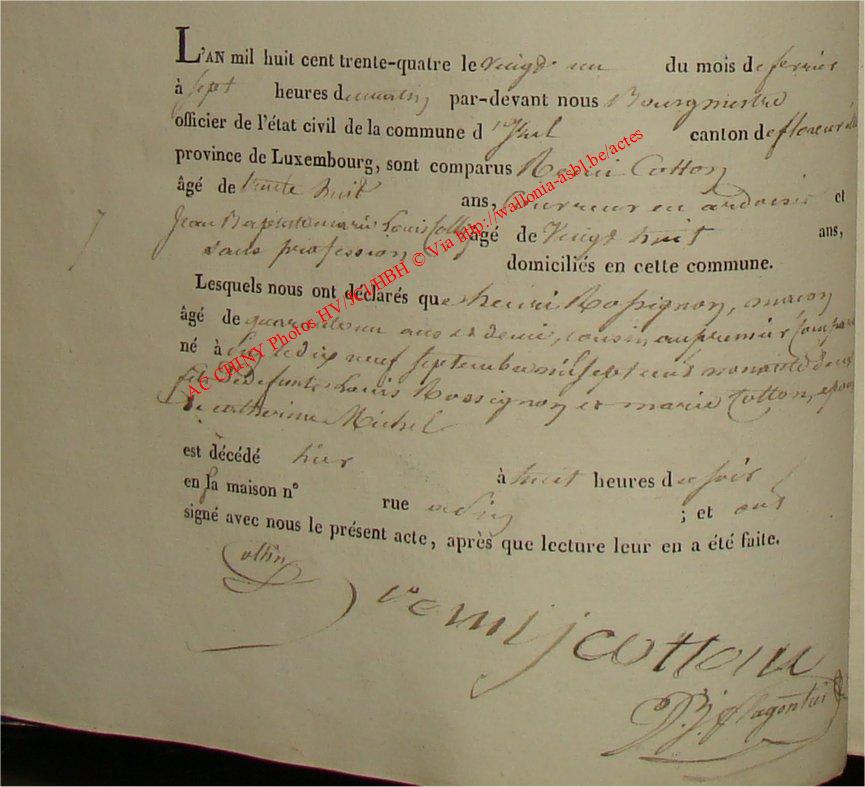 L'AN mil huit cent trente-quatre le vingt un du mois de fevrier
à sept heures du matin par-devant nous Bourgmestre
officier de l'état civil de la commune d' canton de
province de Luxembourg, sont comparus Remi Cotton
âgé de trente huit ans, ouvrier en ardoise et
Jean Baptiste marie Louis Collin âgé de vingt huit ans,
sans profession domiciliés en cette commune.
Lesquels nous ont déclarés que henri Rossignon, macon
âgé de quarante un ans et demi, cousin au premier Comparant
né à le dix neuf septembre mil sept cent nonante deux
fils de defunts Louis Rossignon et marie Cotton, epoux
de catherine Michel
est décédé hier à huit heures du soir
en sa maison n° rue ; et ont
signé avec nous le présent acte, après que lecture leur en a été faite.
Collin
remi j cotton
AC CHINY Photos HV/JCl/HBH © Via http://wallonia-asbl.be/actes